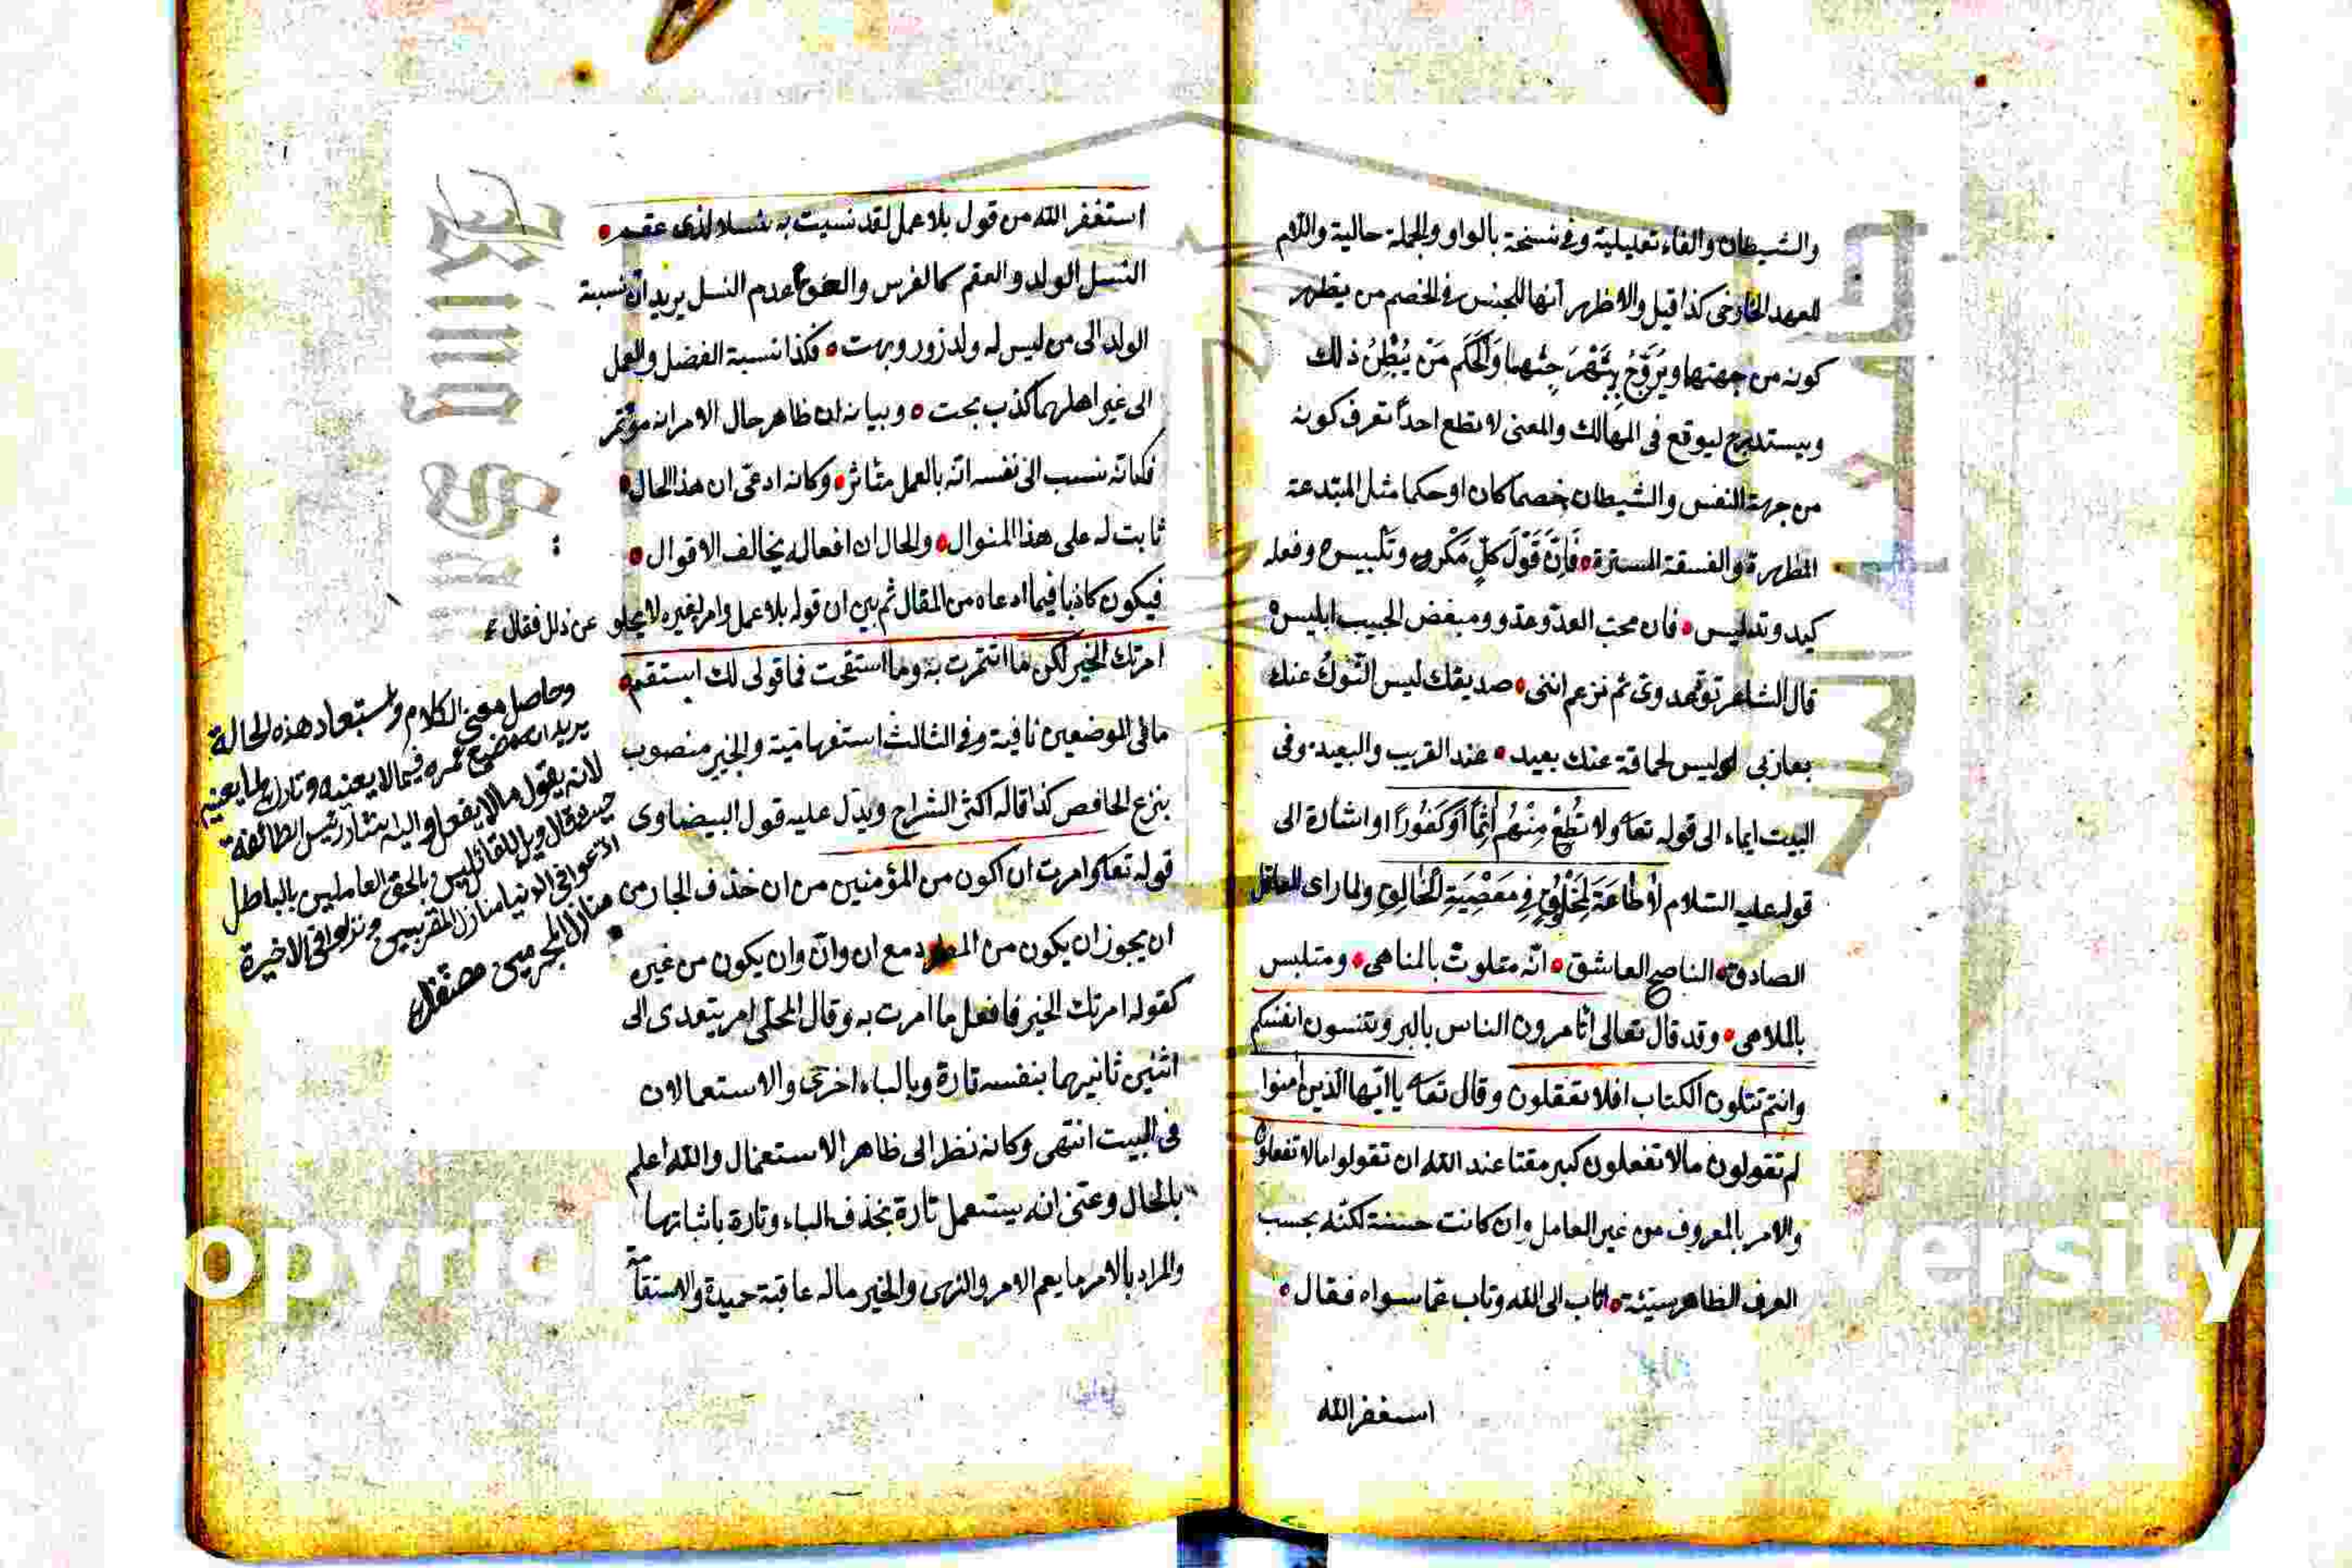 والشيطان والفاء تعليلية وفي نسخة بالواو والجملة حالية واللام
للعهد الخارجي كذا قيل والاظهر أنها للجنس في الخصم من يظهر
كونه من جهتها ويروج وَالْحَكَم مَنْ يُبْطِنُ ذلك
ويستدرج ليوقع في المهالك والمعنى لا تطع احداً تعرف كونه
من جهة النفس والشيطان خصما كان او حكما مثل المبتدعة
المظهرة والفسقة المسترة فَإِنَّ قَوْلَ كلٍّ مَكْرٌ وتلبيس وفعله
كيد وتدليس فان محب العدو عدو ومبغض الحبيب ابليس
قال الشاعر تود عدوى ثم تزعم اننى صديقك ليس النوك عنك
بعازبي اى ليس الحماقة عنك بعيد عند القريب والبعيد وفى
البيت ايماء الى قوله تعا ولا تُطِعْ مِنْهُم أثِماً أوْ كَفُوراً او اشارة الى
قوله عليه السلام لا طَاعَةَ لِمَخْلُوقٍ فِي مَعْصِيَةِ الْخَالِقِ ولما راى العاقل
الصادق الناصح العاشق انه متلوث بالمناهى ومتلبس
بالملاهى وقد قال تعالى اتأمرون الناس بالبر وتنسون انفسكم
وانتم تتلون الكتاب افلا تعقلون وقال تعا يا ايها الذين امنوا
لم تقولون مالا تفعلون كبر مقتا عند الله ان تقولوا مالا تفعلون
والامر بالمعروف من غير العامل وان كانت حسنة لكنه بحسب
العرف الظاهر سيئة اناب الى الله وتاب عما سواه فقال
استغفر الله
استغفر الله من قول بلا عمل لقد نسبت به نسلا لذى عقم
النسل الولد والعقم كالفرس عدم النسل يريد ان نسبة
الولد الى من ليس له ولد زور وبهت فكذا نسبة الفضل والعمل
الى غير اهلهما كذب بحت وبيانه ان ظاهر حال الامر انه مؤتمر
فكانه نسب الى نفسه انه بالعمل متاثر وكانه ادعى ان هذا الحال
ثابت له على هذا المنوال والحال ان افعاله يخالف الاقوال
فيكون كاذبا فيما ادعاه من المقال ثم بين ان قوله بلا عمل وامر لغيره لا يخلو عن ذلل فقال
امرتك الخير لكن ما ائتمرت به وما استقمت فما قولى لك استقم
مافى الموضعين نافية وفى الثالث استفهامية والخير منصوب
بنزع الخافض كذا قاله اكثر الشراح ويدل عليه قول البيضاوى
قوله تعا وامرت ان اكون من المؤمنين من ان حذف الجار من
ان يجوز ان يكون من المطرد مع ان وانّ وان يكون من غيره
كقوله امرتك الخير فافعل ما امرت به وقال المحلى امر يتعدى الى
اثنين ثانيهما بنفسه تارة وبالباء اخرى والاستعمالان
فى البيت انتهى وكانه نظر الى ظاهر الاستعمال والله اعلم
بالحال وعنى انه يستعمل تارة بحذف الباء وتارة باثباتها
والمراد بالامر ما يعم الامر والنهى والخير ماله عاقبة حميدة والاستقامة
وحاصل معنى الكلام واستبعاد هذه الحالة
يريد ان ضيع عمره فيما لا يعنيه وتارك لما يعنيه
لانه يقول مالا يفعل واليه اشار رئيس الطائفة
حيث قال ويل للقائلين بالحق العاملين بالباطل
ادعوا فى الدنيا منازل المقربين ونزلوا فى الاخرة
منازل المجرمين